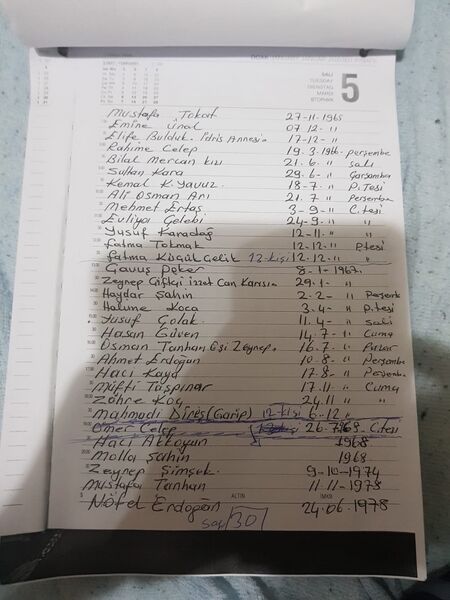 OCAK
SALI
TUESDAY
DIENSTAG
MARDI
5
Mustafa Tokat 27-11-1965
Emine Ünal 07-12- "
Elife Bulduk. İdris Annesi. 17-12- "
Rahime Celep 19.3-1966- perşembe
Bilal Mercan kızı 21.6- " salı
Sultan Kara 29.6- " Çarşamba
Kemal K. Yavuz. 18-7- " P.Tesi
Ali Osman Arı 21.7 " Perşembe
Mehmet Ertaş 3-9- " C.tesi
Evliya Çelebi 24-9- "
Yusuf Karadağ 12-11- " "
Fatma Tokmak 12-12- " P.tesi
Fatma Küçük Çelik 12-kişi 12.12- " "
Çavuş Peker 8-1-1967.
Zeynep Çiftçi İzzet Can Karısı 29.1- "
Haydar Şahin 2.2- " Perşemb
Halime Koca 3.4- " P.tesi
Yusuf Çolak. 11.4- " Salı
Hasan Güven 14.7- " Cuma
Osman Tanhan Eşi Zeynep. 16.7- " Pazar
Ahmet Erdoğan 10.8- " Perşembe
Hacı Kaya 17.8- " Perşemb
Müfti Taşpınar 17.11 " Cuma
Zöhre Koç 24.11 " "
Mahmadi Direş (Garip) 12-kişi 6-12 "
Ömer Celep 26.7.968. C.tesi
Hacı Akkoyun 1968
Molla Şahin 1968
Zeynep Şimşek. 9-10-1974
Mustafa Tanhan 11-11-1978
Nöfel Erdoğan 24.06.1978
ALTIN IMKB
30